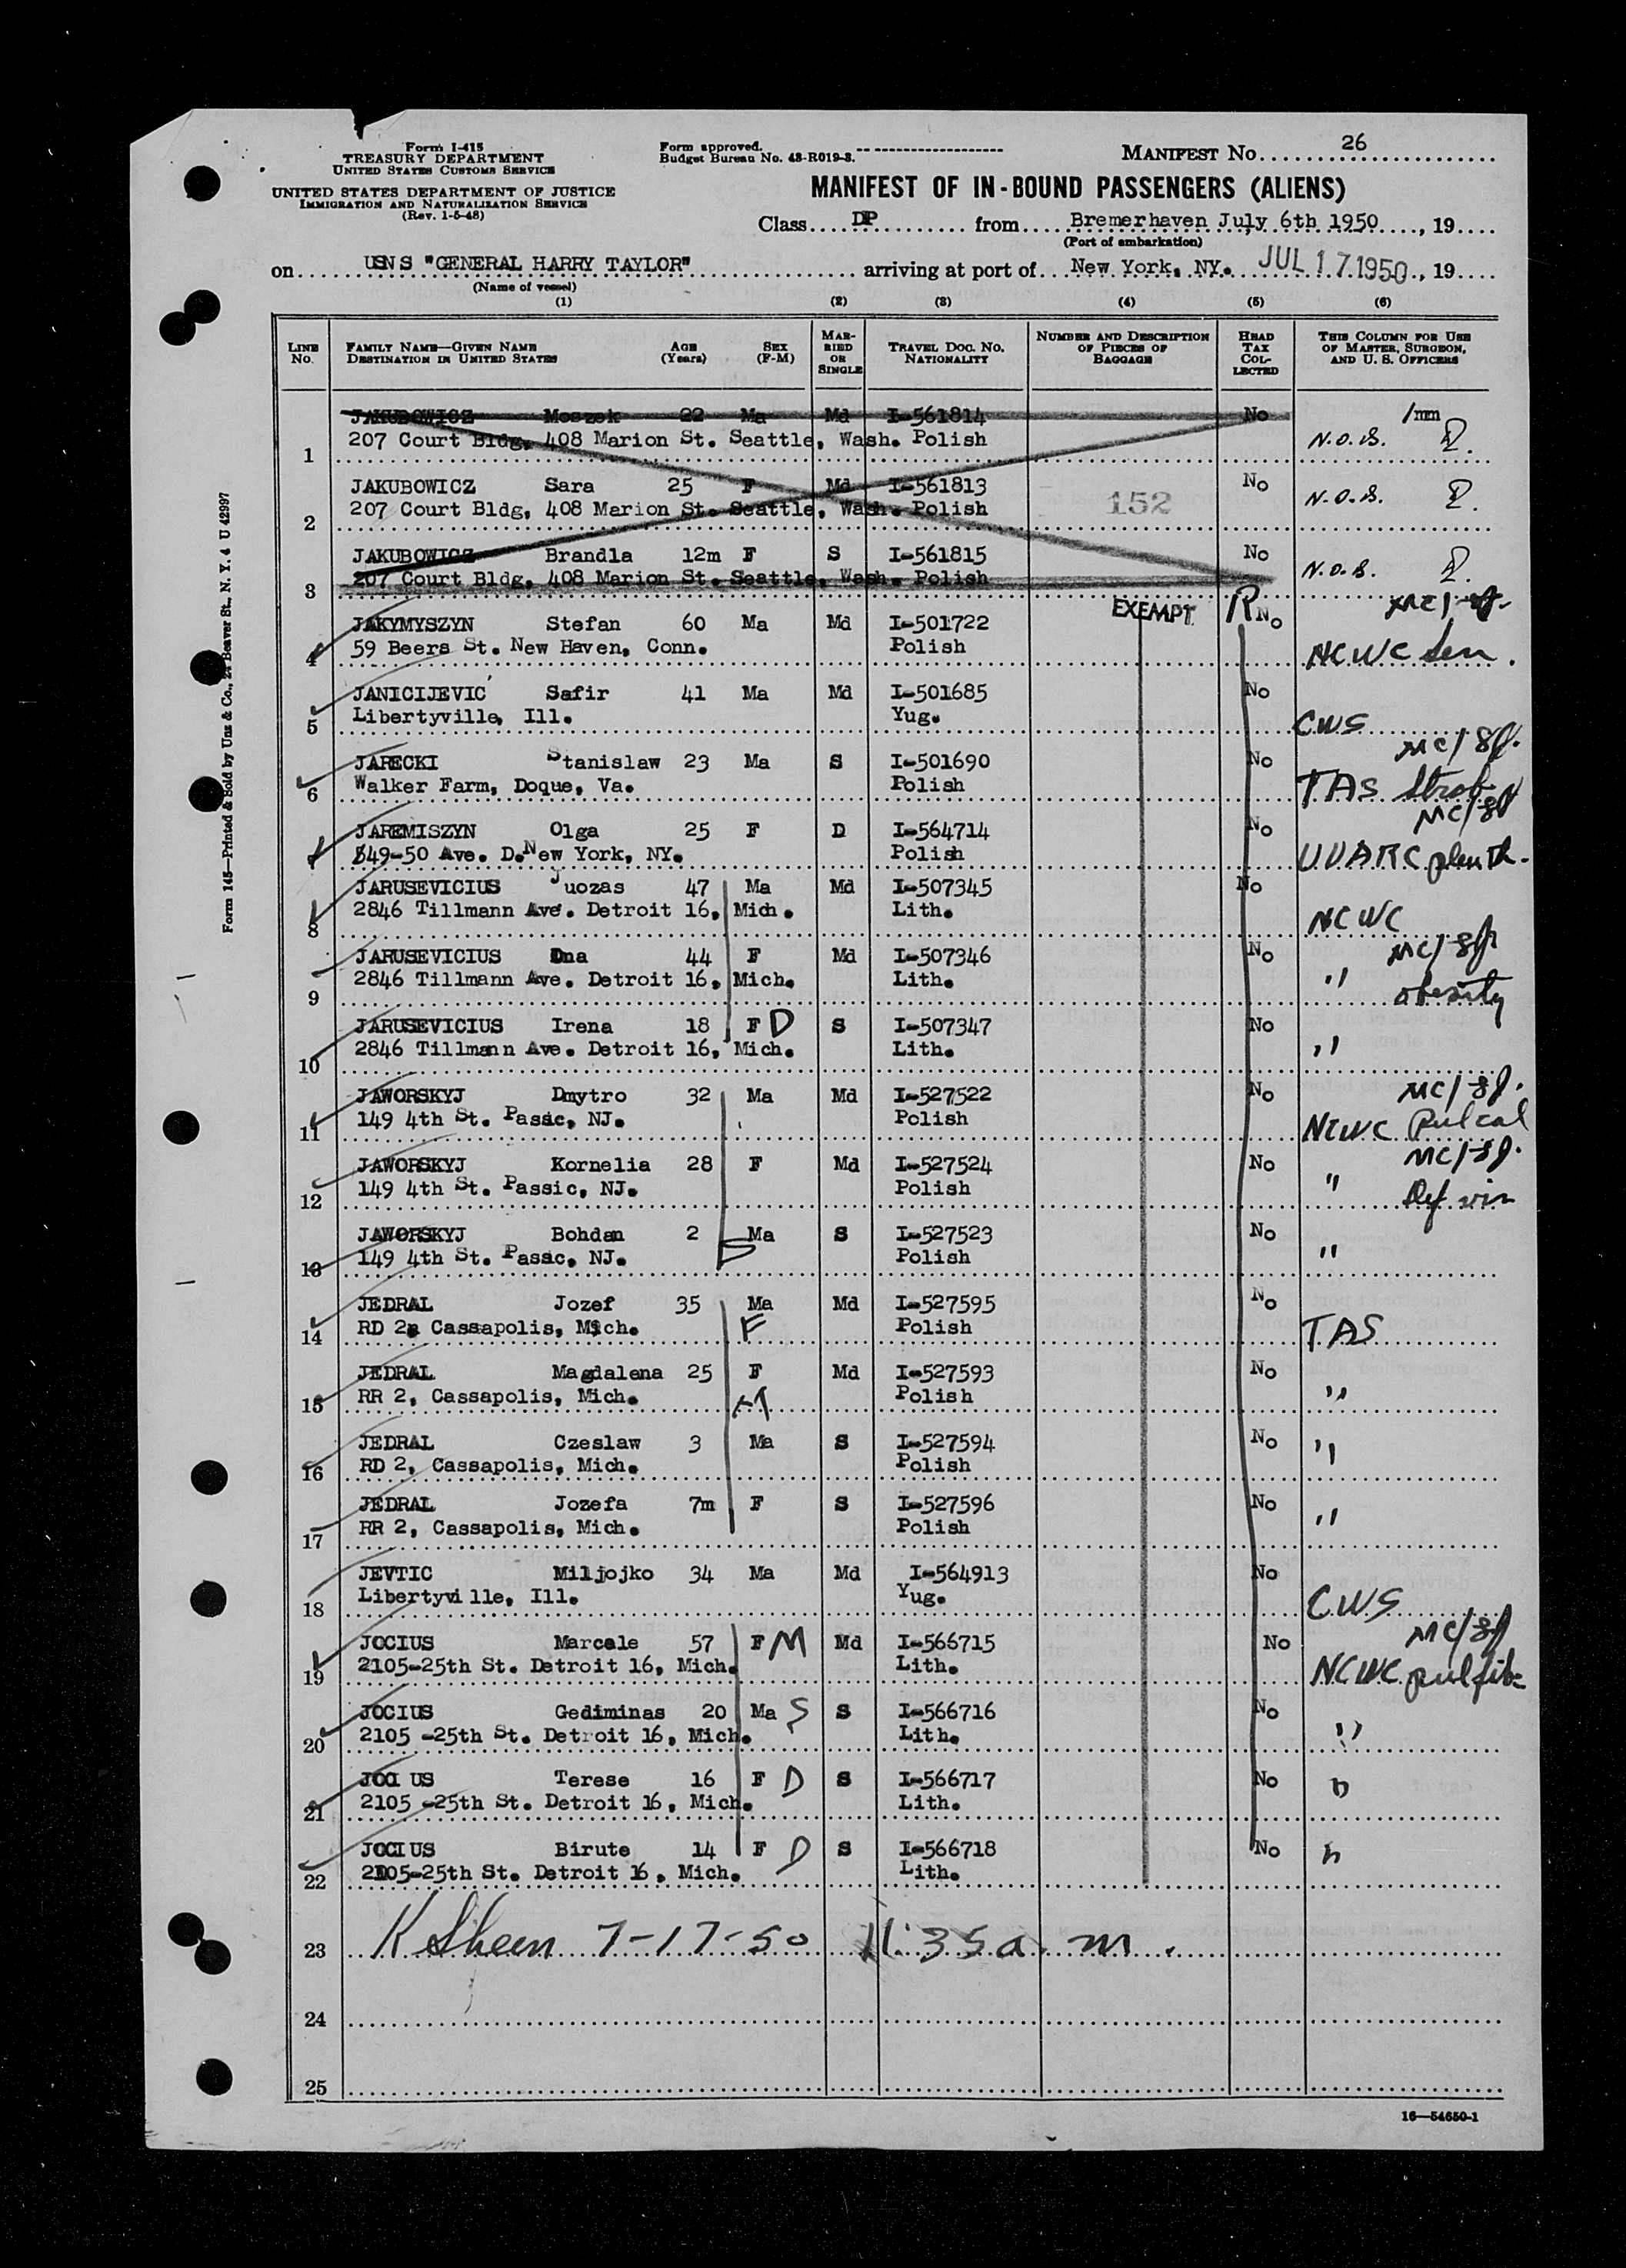 Form I-415
TREASURY DEPARTMENT
UNITED STATES CUSTOMS SERVICE
UNITED STATES DEPARTMENT OF JUSTICE
IMMIGRATION AND NATURALIZATION SERVICE
(Rev. 1-5-48)
Form approved.
Budget Bureau No. 43-R019-3.
MANIFEST NO. 26
MANIFEST OF IN-BOUND PASSENGERS (ALIENS)
Class DP from Bremerhaven July 6th 1950, 19
(Port of embarkation)
on USNS "GENERAL HARRY TAYLOR" arriving at port of New York, NY. JUL 17 1950, 19
(Name of vessel)
(1) (2) (3) (4) (5) (6)
LINE NO. FAMILY NAME—GIVEN NAME DESTINATION IN UNITED STATES AGE (Years) SEX (F-M) MARRIED OR SINGLE TRAVEL DOC. NO. NATIONALITY NUMBER AND DESCRIPTION OF PIECES OF BAGGAGE HEAD TAX COLLECTED THIS COLUMN FOR USE OF MASTER, SURGEON, AND U. S. OFFICERS
JAKUBOWICZ Moszek 22 Ma Md I-561814 No /mm
1 207 Court Bldg, 408 Marion St. Seattle, Wash. Polish N.O.B.
JAKUBOWICZ Sara 25 F Md I-561813 No
2 207 Court Bldg, 408 Marion St. Seattle, Wash. Polish 152 N.O.B.
JAKUBOWICZ Brandla 12m F S I-561815 No
3 207 Court Bldg, 408 Marion St. Seattle, Wash. Polish N.O.B.
JAKYMYSZYN Stefan 60 Ma Md I-501722 EXEMPT R No
4 59 Beers St. New Haven, Conn. Polish NCWC Sen.
JANICIJEVIC Safir 41 Ma Md I-501685 No
5 Libertyville, Ill. Yug. CWS
JARECKI Stanislaw 23 Ma S I-501690 No MC/
6 Walker Farm, Doque, Va. Polish TAS Strab
JAREMISZYN Olga 25 F D I-564714 No MC/
7 849-50 Ave. D. New York, NY. Polish UUARC
JARUSEVICIUS Juozas 47 Ma Md I-507345 No
8 2846 Tillmann Ave. Detroit 16, Mich. Lith. NCWC
JARUSEVICIUS Ona 44 F Md I-507346 No MC/
9 2846 Tillmann Ave. Detroit 16, Mich. Lith. " obesity
JARUSEVICIUS Irena 18 F D S I-507347 No
10 2846 Tillmann Ave. Detroit 16, Mich. Lith. "
JAWORSKYJ Dmytro 32 Ma Md I-527522 No MC/
11 149 4th St. Passic, NJ. Polish NCWC Pul cal
JAWORSKYJ Kornelia 28 F Md I-527524 No MC/
12 149 4th St. Passic, NJ. Polish " Def vis
JAWORSKYJ Bohdan 2 Ma S I-527523 No
13 149 4th St. Passic, NJ. S Polish "
JEDRAL Jozef 35 Ma Md I-527595 No
14 RD 2, Cassapolis, Mich. F Polish TAS
JEDRAL Magdalena 25 F Md I-527593 No
15 RR 2, Cassapolis, Mich. M Polish "
JEDRAL Czeslaw 3 Ma S I-527594 No
16 RD 2, Cassapolis, Mich. Polish "
JEDRAL Jozefa 7m F S I-527596 No
17 RR 2, Cassapolis, Mich. Polish "
JEVTIC Miljojko 34 Ma Md I-564913 No
18 Libertyville, Ill. Yug. CWS
JOCIUS Marcele 57 F M Md I-566715 No MC/
19 2105-25th St. Detroit 16, Mich. Lith. NCWC pul fib
JOCIUS Gediminas 20 Ma S S I-566716 No
20 2105 -25th St. Detroit 16, Mich. Lith. "
JOCIUS Terese 16 F D S I-566717 No
21 2105 -25th St. Detroit 16, Mich. Lith. "
JOCIUS Birute 14 F D S I-566718 No
22 2105-25th St. Detroit 16, Mich. Lith. "
23 K Sheen 7-17-50 11:35 a.m.
24
25
16—54650-1
Form 145—Printed & Sold by Unz & Co., 24 Beaver St., N. Y. 4 U 42997